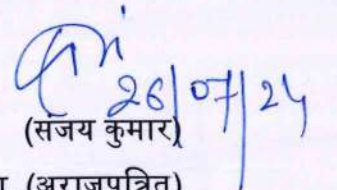 26/07/24
(संजय कुमार)
(अराजपत्रित)